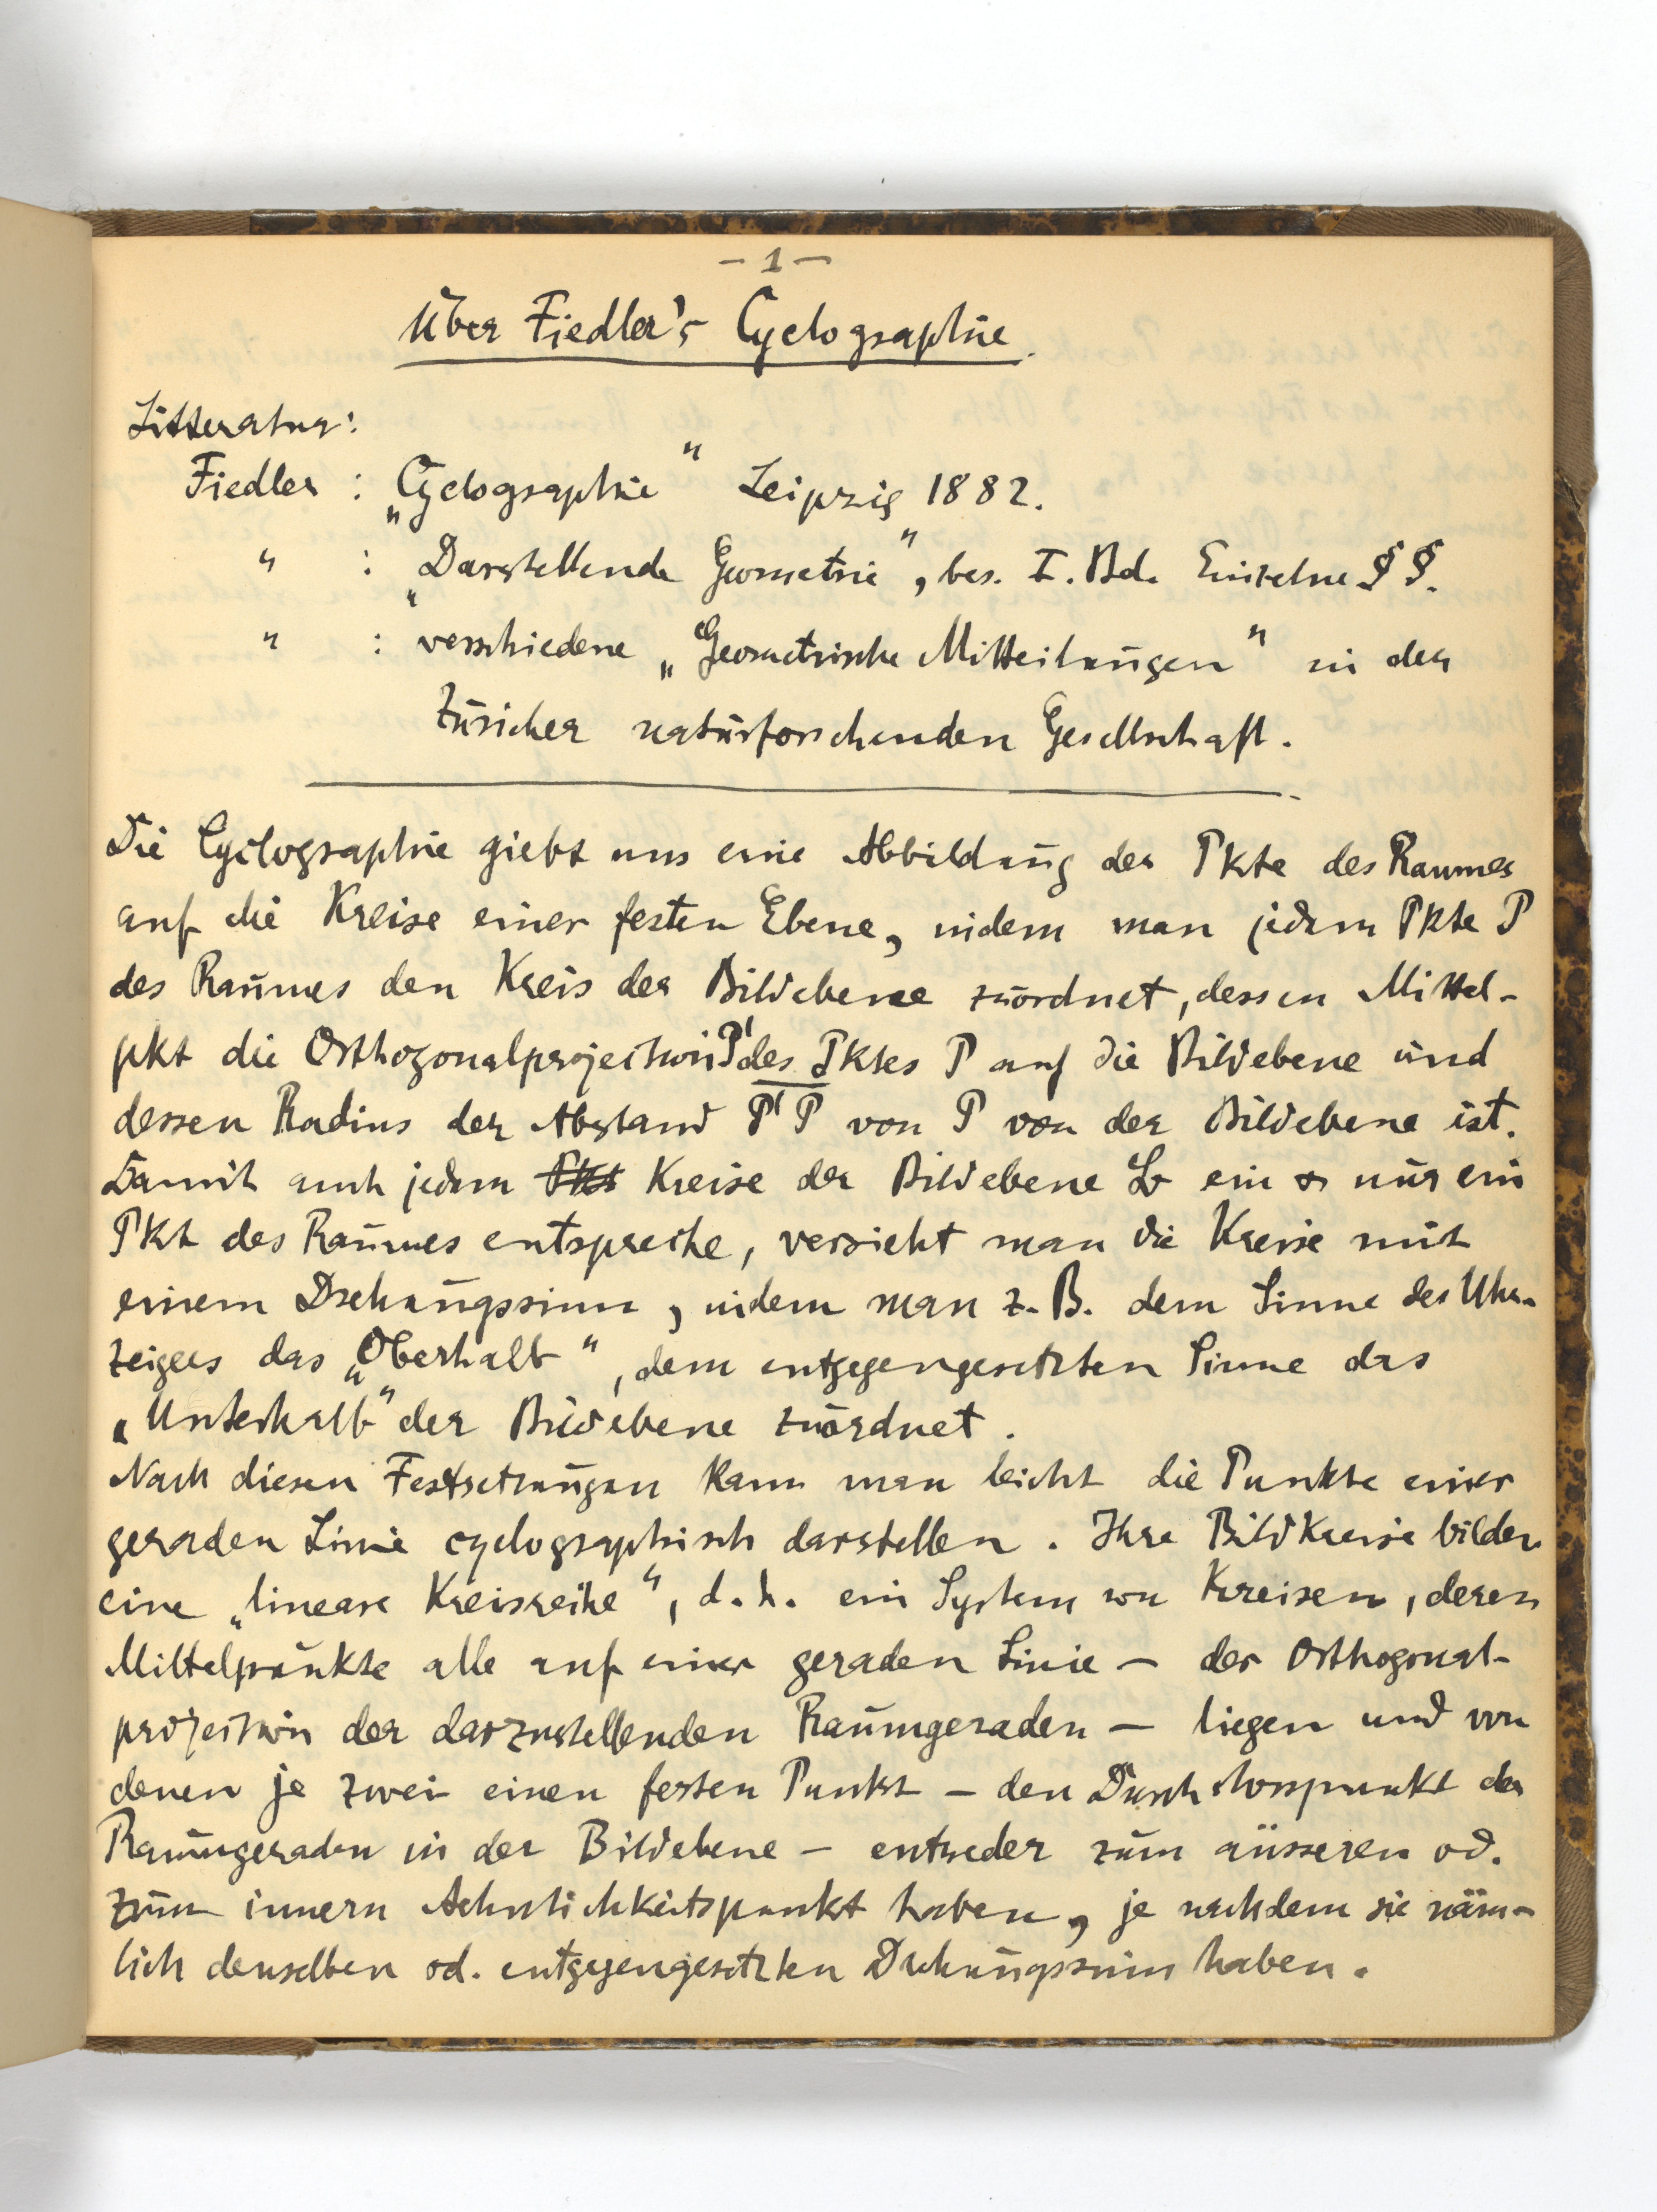 - 1 -
Über Fiedler's Cyclographie.
Litteratur:
Fiedler : „Cyclographie" Leipzig 1882.
" : „Darstellende Geometrie", bes. I. Bd. Einzelne §§.
" : verschiedene „Geometrische Mitteilungen" in der
Züricher naturforschenden Gesellschaft.
Die Cyclographie giebt uns eine Abbildung der Pkte des Raumes
auf die Kreise einer festen Ebene, indem man jedem Pkte P
des Raumes den Kreis der Bildebene zuordnet, dessen Mittel-
pkt die Orthogonalprojection P' des Pktes P auf die Bildebene und
dessen Radius der Abstand P'P von P von der Bildebene ist.
Damit auch jedem Kreise der Bildebene ein & nur ein
Pkt des Raumes entspreche, versieht man die Kreise mit
einem Drehungssinn, indem man z. B. dem Sinne des Uhr-
zeigers das „Oberhalb", dem entgegengesetzten Sinne das
„Unterhalb" der Bildebene zuordnet.
Nach diesen Festsetzungen kann man leicht die Punkte einer
geraden Linie cyclographisch darstellen. Ihre Bildkreise bilden
eine „lineare Kreisreihe", d. h. ein System von Kreisen, deren
Mittelpunkte alle auf einer geraden Linie – der Orthogonal-
projection der darzustellenden Raumgeraden – liegen und von
denen je zwei einen festen Punkt – den Durchstosspunkt der
Raumgeraden in der Bildebene – entweder zum äusseren od.
zum innern Aehnlichkeitspunkt haben, je nachdem sie näm-
lich denselben od. entgegengesetzten Drehungssinn haben.